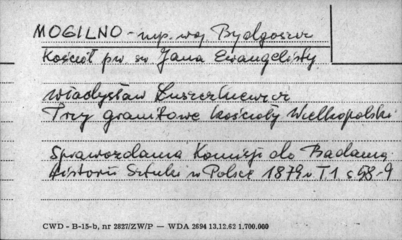 MOGILNO - mp. woj Bydgoszcz
Kościół pw. św Jana Ewangelisty
Władysław Łuszczkiewicz
Trzy granitowe kościoły Wielkopolski
Sprawozdania Komisji do Badania
Historii Sztuki w Polsce 1879 r T1 s 68-9
CWD - B-15-b, nr 2827/ZW/P — WDA 2694 13.12.62 1.700.000